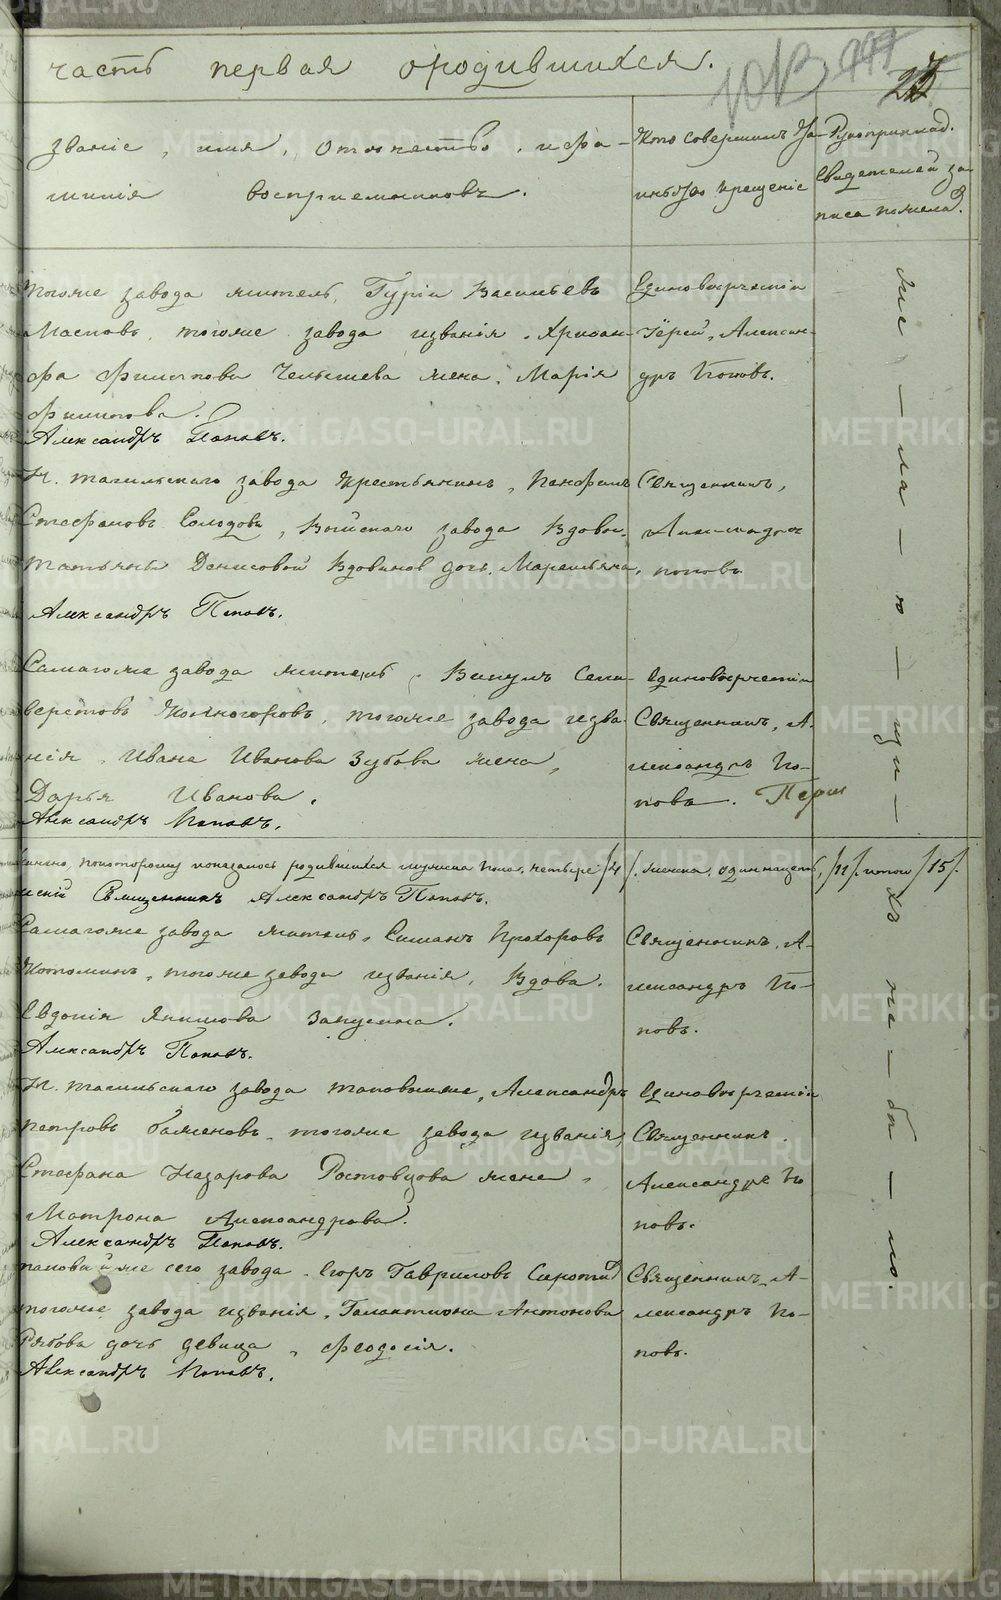 часть первая ородившихся.
званіе, имя, отечество, ифа-
миліа воспріемниковъ.
Кто совершилъ Та-
инство крещенiе
Рукоприклад.
Свидетелей за-
писа пожела
тогоже завода житель, Гурiи Васильевъ
Масловъ, тогоже завода изванiя, Хрисан-
фа Филипова Челышева жена, Марiя
Филипова.
Александръ Поповъ.
Единоверческiи
Iерей, Алексан-
дръ Поповъ.
Н. тагильскаго завода крестьянинъ, Панфилъ
Стефановъ Солодовъ, Выйскаго завода Вдовы
татьяны Денисовой Вдовиной дочь, Маремьяна,
Александръ Поповъ.
Священникъ,
Александръ
поповъ
Самагоже завода житель, Викулъ Сели-
верстовъ Холмогоровъ, тогоже завода изва-
нiя, Ивана Иванова Зубова жена,
Дарья Иванова.
Александръ Поповъ.
Единоверческiи
Священникъ, А-
лександръ По-
повъ. Перш
показалось родившихся мужеска пола, четыре /4/. женска, одиннацеть, /11/. итого /15/.
Священникъ Александръ Поповъ.
Самагоже завода житель, Симанъ Прохоровъ
Котоминъ, тогоже завода изванiя, Вдова.
Евдокiя Якимова Закусина.
Александръ Поповъ.
Священникъ, А-
лександръ По-
повъ.
Н. тагильскаго завода таковыиже, Александръ
Петровъ Баженовъ, тогоже завода изванiя,
Стефана Назарова Ростовцова жена,
Матрона Александрова.
Александръ Поповъ.
Единоверческiи
Священникъ.
Александръ По
повъ.
таковыйже сего завода, Егоръ Гавриловъ Сирот
тогоже завода изванiя, Галактиона Антонова
Рябова дочь девица, Феодосiя.
Александръ Поповъ.
Священникъ, А-
лександръ По-
повъ.
Же — ла — ю — щи — хъ не — бы — ло.
METRIKI.GASO-URAL.RU